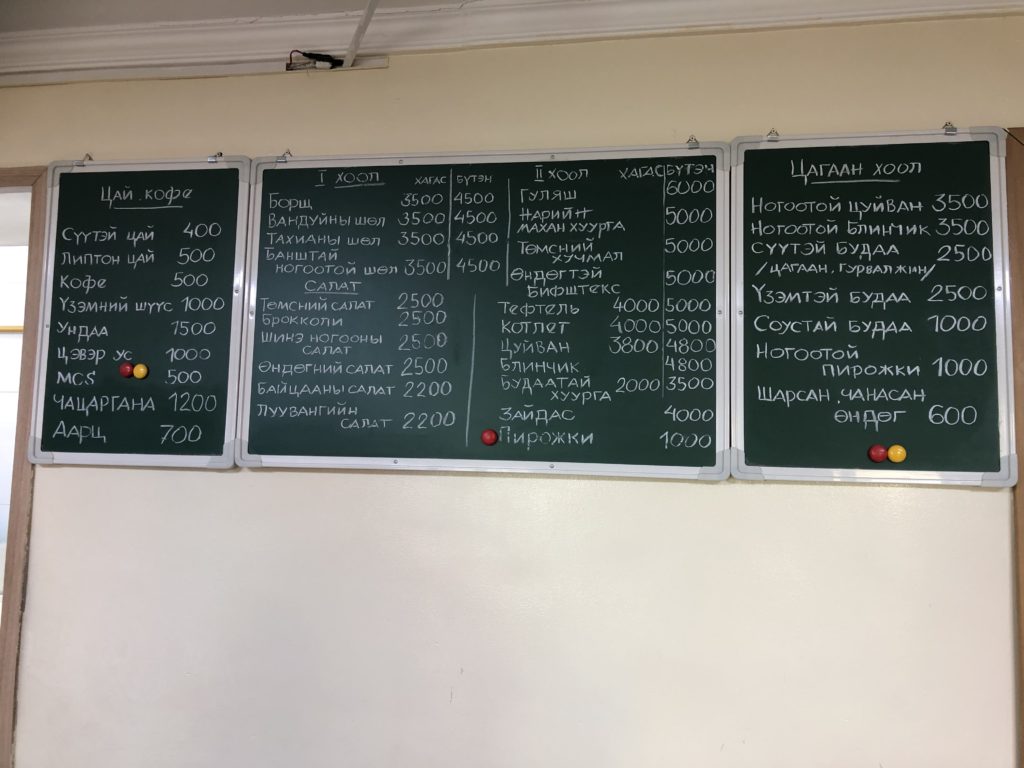 ЦАЙ. КОФЕ
СҮҮТЭЙ ЦАЙ 400
ЛИПТОН ЦАЙ 500
КОФЕ 500
ҮЗЭМНИЙ ШҮҮС 1000
УНДАА 1500
ЦЭВЭР УС 1000
MCS 500
ЧАЦАРГАНА 1200
ААРЦ 700
I ХООЛ ХАГАС БҮТЭН
БОРЩ 3500 4500
ВАНДУЙНЫ ШӨЛ 3500 4500
ТАХИАНЫ ШӨЛ 3500 4500
БАНШТАЙ
НОГООТОЙ ШӨЛ 3500 4500
САЛАТ
ТӨМСНИЙ САЛАТ 2500
БРОККОЛИ 2500
ШИНЭ НОГООНЫ
САЛАТ 2500
ӨНДӨГНИЙ САЛАТ 2500
БАЙЦААНЫ САЛАТ 2200
ЛУУВАНГИЙН
САЛАТ 2200
II ХООЛ ХАГАС БҮТЭН
ГУЛЯШ 6000
НАРИЙН
МАХАН ХУУРГА 5000
ТӨМСНИЙ
ХУЧМАЛ 5000
ӨНДӨГТЭЙ
БИФШТЕКС 5000
ТЕФТЕЛЬ 4000 5000
КОТЛЕТ 4000 5000
ЦУЙВАН 3800 4800
БЛИНЧИК 4800
БУДААТАЙ
ХУУРГА 2000 3500
ЗАЙДАС 4000
ПИРОЖКИ 1000
ЦАГААН ХООЛ
НОГООТОЙ ЦУЙВАН 3500
НОГООТОЙ БЛИНЧИК 3500
СҮҮТЭЙ БУДАА 2500
/ЦАГААН, ГУРВАЛЖИН/
ҮЗЭМТЭЙ БУДАА 2500
СОУСТАЙ БУДАА 1000
НОГООТОЙ
ПИРОЖКИ 1000
ШАРСАН, ЧАНАСАН
ӨНДӨГ 600